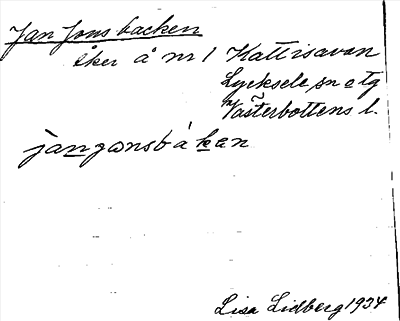 Jan Jonsbacken
åker å nr 1 Kattisavan
Lycksele sn o tg
Västerbottens l.
jangonsbákan
Lisa Lidberg 1934